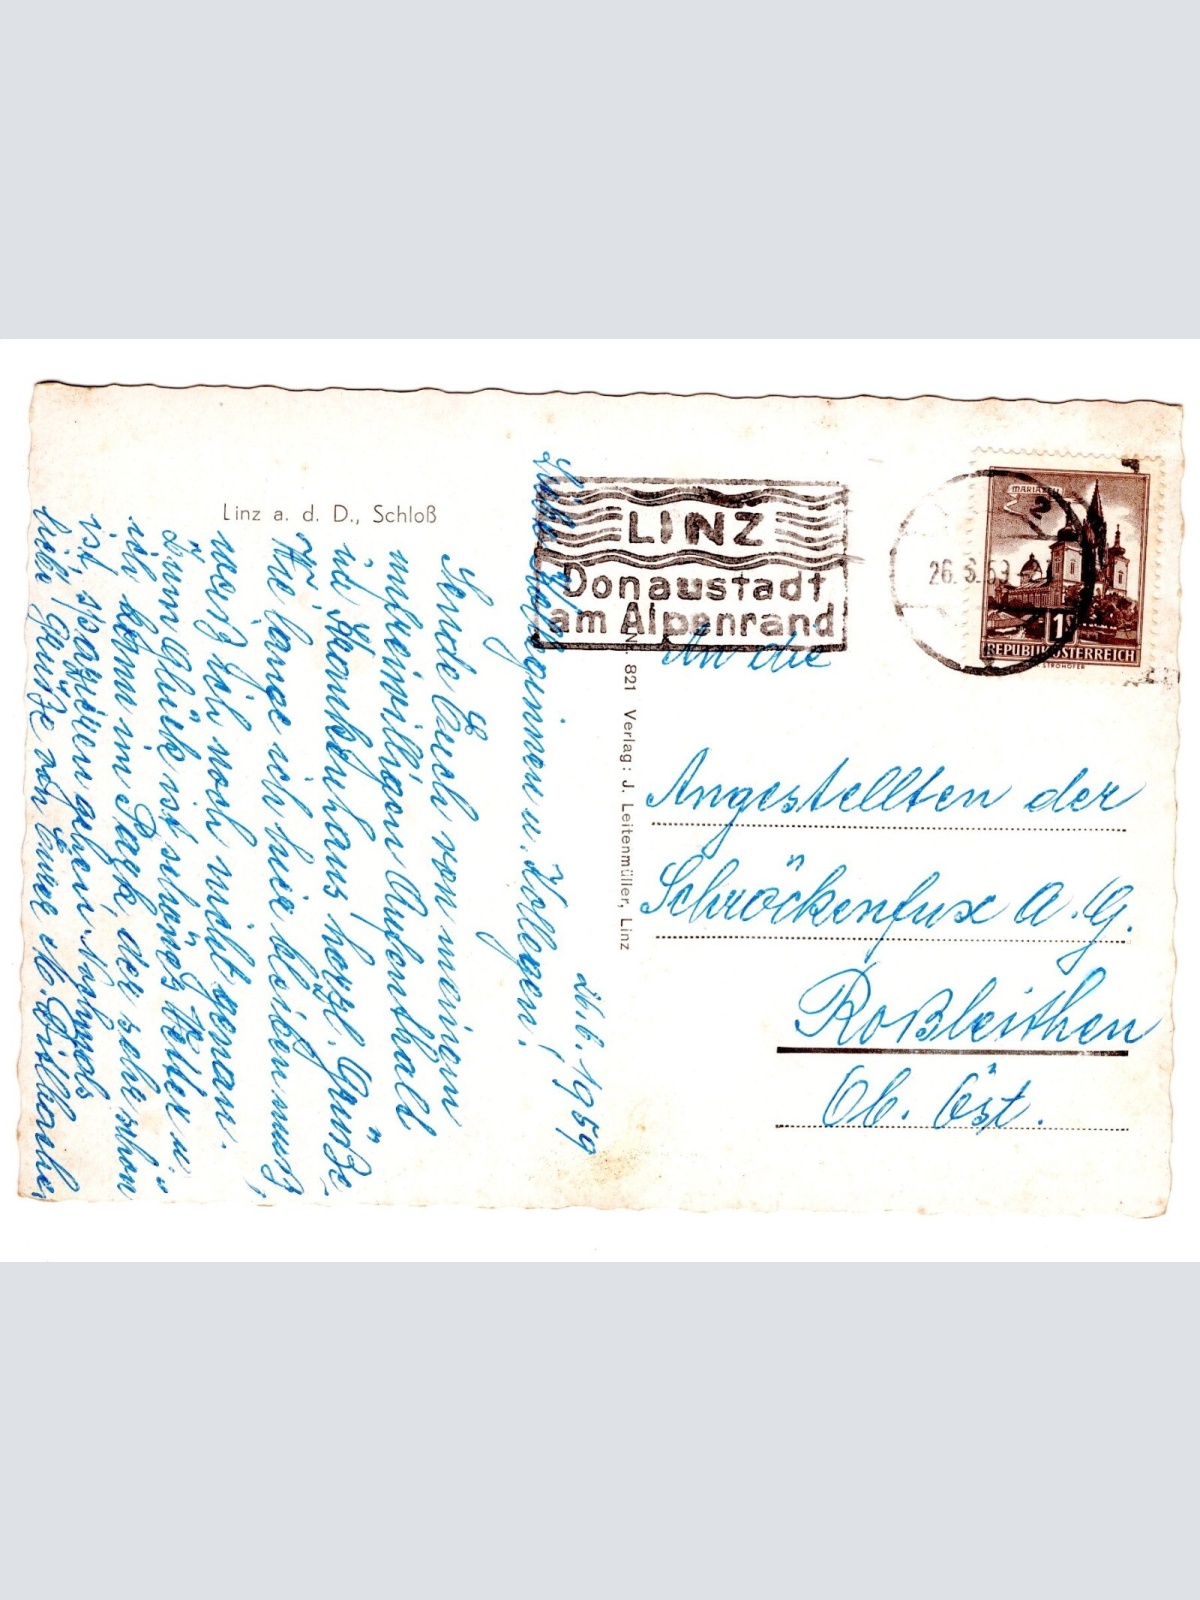 Linz a. d. D., Schloß
26.6.1959
Liebe Kolleginnen u. Kollegen!
Sende Euch von meinem
unfreiwilligen Aufenthalt
im Krankenhaus herzl. Grüße.
Wie lange ich hier bleiben muß,
weiß ich noch nicht genau.
Zum Glück ist schönes Wetter u.
ich kann in Park, der sehr schön
ist, spazieren gehen. Nochmals
liebe Grüße von Eure
Nr. 821 Verlag: J. Leitenmüller, Linz
LINZ
Donaustadt
am Alpenrand
26. 6. 59
MARIAZELL
1S
REPUBLIK ÖSTERREICH
An die
Angestellten der
Schröckenfux A.G.
Roßleithen
Ob. Öst.